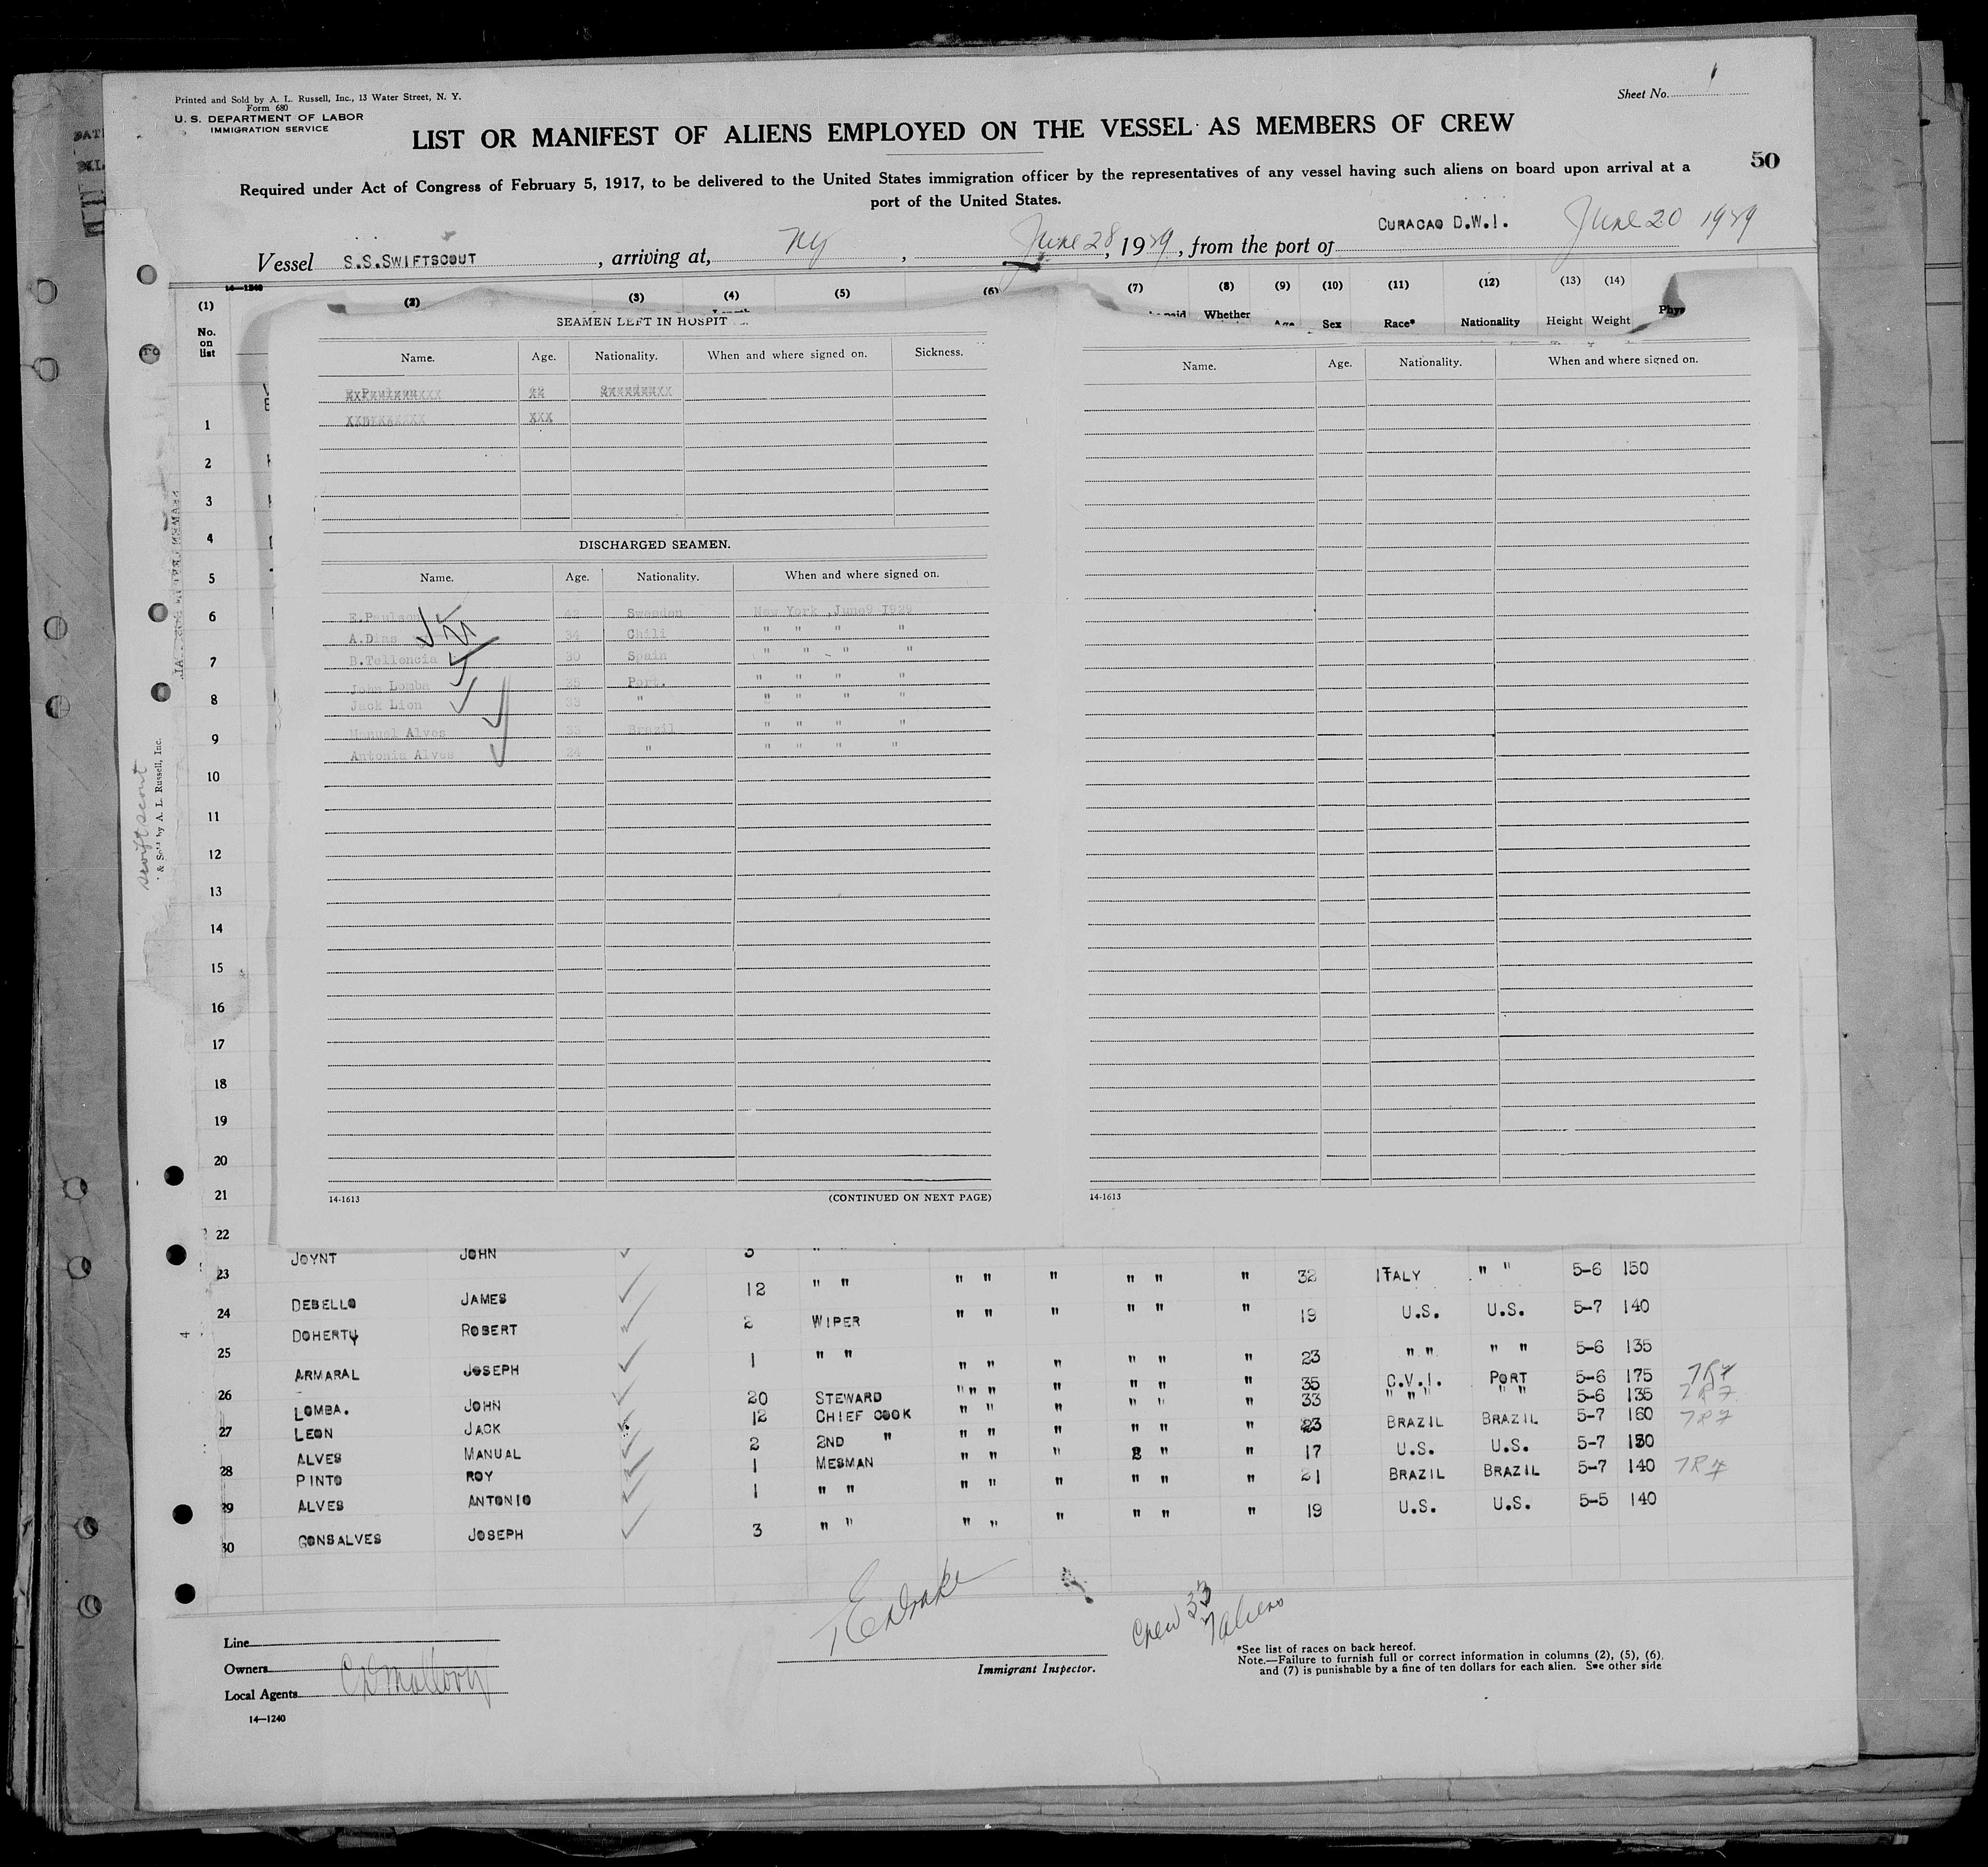 Printed and Sold by A. L. Russell, Inc., 13 Water Street, N. Y.
Form 680
U. S. DEPARTMENT OF LABOR
IMMIGRATION SERVICE
Sheet No. 1
LIST OR MANIFEST OF ALIENS EMPLOYED ON THE VESSEL AS MEMBERS OF CREW
50
Required under Act of Congress of February 5, 1917, to be delivered to the United States immigration officer by the representatives of any vessel having such aliens on board upon arrival at a
port of the United States.
Vessel S.S.SWIFTSCOUT, arriving at, NY, June 28, 1929, from the port of CURACAO D.W.I. June 20 1929
14-1240
(1) (2) (3) (4) (5) (6) (7) (8) (9) (10) (11) (12) (13) (14)
No. on list
Whether Age Sex Race* Nationality Height Weight
SEAMEN LEFT IN HOSPIT
Name. Age. Nationality. When and where signed on. Sickness.
Name. Age. Nationality. When and where signed on.
DISCHARGED SEAMEN.
Name. Age. Nationality. When and where signed on.
E.Paulson 42 Sweeden New York ,June9 1929
A.Dias 34 Chili " " " "
B.Tellencia 30 Spain " " " "
John Lomba 35 Port. " " " "
Jack Lion 33 " " " " "
Manuel Alves 33 Brazil " " " "
Antonia Alves 24 " " " " "
14-1613 (CONTINUED ON NEXT PAGE)
14-1613
1
2
3
4
5
6
7
8
9
10
11
12
13
14
15
16
17
18
19
20
21
22
23
24
25
26
27
28
29
30
swiftscout
& Sold by A. L. Russell, Inc.
4
JOYNT JOHN 3 " "
DEBELLO JAMES 12 " " " " " " " " 32 ITALY " " 5-6 150
DOHERTY ROBERT 2 WIPER " " " " " " 19 U.S. U.S. 5-7 140
ARMARAL JOSEPH 1 " " " " " " " " 23 " " " " 5-6 135
LOMBA. JOHN 20 STEWARD " " " " " " " 35 C.V.I. PORT 5-6 175 TR7
LEON JACK 12 CHIEF COOK " " " " " " 33 " " " " " 5-6 135 TR7
ALVES MANUAL 2 2ND " " " " " " " 23 BRAZIL BRAZIL 5-7 160 TR7
PINTO ROY 1 MESMAN " " " " " 17 U.S. U.S. 5-7 150
ALVES ANTONIO 1 " " " " " " " " 21 BRAZIL BRAZIL 5-7 140 TR7
GONSALVES JOSEPH 3 " " " " " " " " 19 U.S. U.S. 5-5 140
T E Drake
Immigrant Inspector.
Crew 33
7 aliens
Line
Owners
Local Agents C D Mallory
14-1240
*See list of races on back hereof.
Note.—Failure to furnish full or correct information in columns (2), (5), (6),
and (7) is punishable by a fine of ten dollars for each alien. See other side